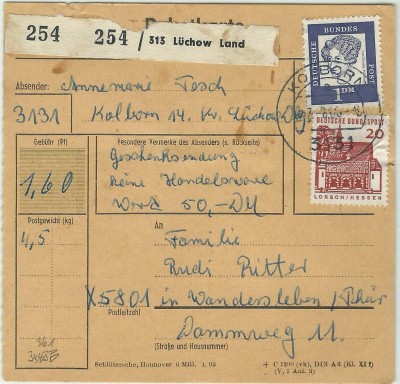 Paketkarte
254
254 / 313 Lüchow Land
DEUTSCHE BUNDESPOST
1 DM
KOLBORN
3131
DEUTSCHE BUNDESPOST
20
LORSCH/HESSEN
Absender: Annemarie Tesch
3131 Kolborn 14. Kr. Lüchow
Gebühr (Pf)
1,60
Besondere Vermerke des Absenders (s. Rückseite)
Geschenksendung
keine Handelsware
Wert 50,-DM
Postgewicht (kg)
4,5
An
Familie
Rudi Ritter
X5801 in Wandersleben /Thür
Postleitzahl
Dammweg 11.
(Straße und Hausnummer)
Schlütersche, Hannover 6 Mill. 4. 65
C 1200 (vk), DIN A 6 (Kl. XI f)
(V, 2 Anl. 3)